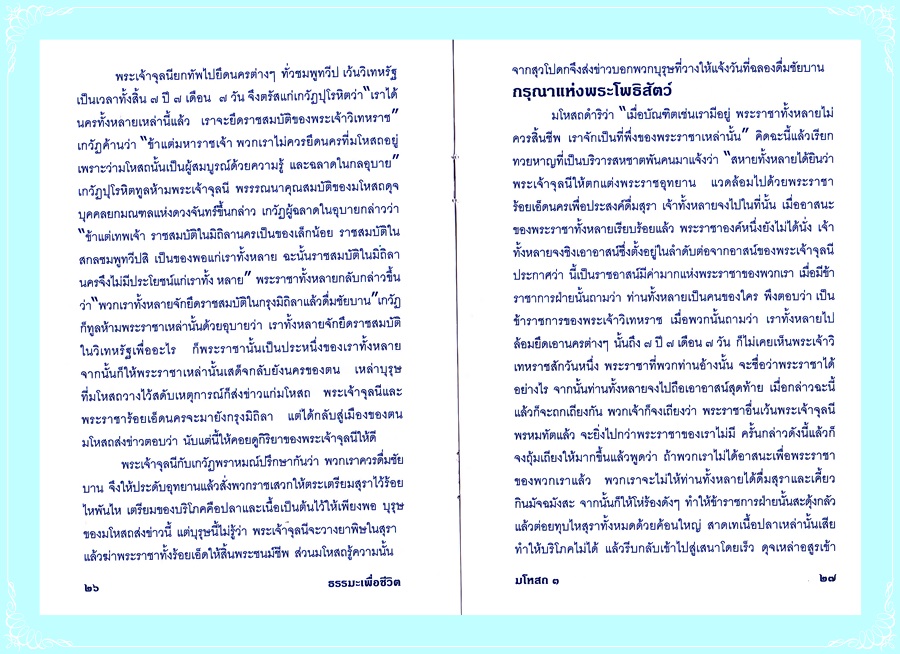 พระเจ้าจุลนียกทัพไปยึดนครต่างๆ ทั่วชมพูทวีป เว้นวิเทหรัฐ
เป็นเวลาทั้งสิ้น ๗ ปี ๗ เดือน ๗ วัน จึงตรัสแก่เกวัฏปุโรหิตว่า “เราได้
นครทั้งหลายเหล่านี้แล้ว เราจะยึดราชสมบัติของพระเจ้าวิเทหราช”
เกวัฏค้านว่า “ข้าแต่มหาราชเจ้า พวกเราไม่ควรยึดนครที่มโหสถอยู่
เพราะว่ามโหสถนั้นเป็นผู้สมบูรณ์ด้วยความรู้ และฉลาดในกลอุบาย”
เกวัฏปุโรหิตทูลห้ามพระเจ้าจุลนี พรรรณาคุณสมบัติของมโหสถดุจ
บุคคลยกมณฑลแห่งดวงจันทร์ขึ้นกล่าว เกวัฏผู้ฉลาดในอุบายกล่าวว่า
“ข้าแต่เทพเจ้า ราชสมบัติในมิถิลานครเป็นของเล็กน้อย ราชสมบัติใน
สกลชมพูทวีปสิ เป็นของพอแก่เราทั้งหลาย ฉะนั้นราชสมบัติในมิถิลา
นครจึงไม่มีประโยชน์แก่เราทั้ง หลาย” พระราชาทั้งหลายกลับกล่าวขึ้น
ว่า“พวกเราทั้งหลายจักยึดราชสมบัติในกรุงมิถิลาแล้วดื่มชัยบาน”เกวัฏ
ก็ทูลห้ามพระราชาเหล่านั้นด้วยอุบายว่า เราทั้งหลายจักยึดราชสมบัติ
ในวิเทหรัฐเพื่ออะไร ก็พระราชานั้นเป็นประหนึ่งของเราทั้งหลาย
จากนั้นก็ให้พระราชาเหล่านั้นเสด็จกลับยังนครของตน เหล่าบุรุษ
ที่มโหสถวางไว้สดับเหตุการณ์ก็ส่งข่าวแก่มโหสถ พระเจ้าจุลนีและ
พระราชาร้อยเอ็ดนครจะมายังกรุงมิถิลา แต่ได้กลับสู่เมืองของตน
มโหสถส่งข่าวตอบว่า นับแต่นี้ให้คอยดูกิริยาของพระเจ้าจุลนีให้ดี
พระเจ้าจุลนีกับเกวัฏพราหมณ์ปรึกษากันว่า พวกเราควรดื่มชัย
บาน จึงให้ประดับอุทยานแล้วสั่งพวกราชเสวกให้ตระเตรียมสุราไว้ร้อย
ไหพันไห เตรียมของบริโภคคือปลาและเนื้อเป็นต้นไว้ให้เพียงพอ บุรุษ
ของมโหสถส่งข่าวนี้ แต่บุรุษนี้ไม่รู้ว่า พระเจ้าจุลนีจะวางยาพิษในสุรา
แล้วฆ่าพระราชาทั้งร้อยเอ็ดให้สิ้นพระชนม์ชีพ ส่วนมโหสถรู้ความนั้น
๒๖ ธรรมะเพื่อชีวิต
จากสุวโปดกจึงส่งข่าวบอกพวกบุรุษที่วางให้แจ้งวันที่ฉลองดื่มชัยบาน
กรุณาแห่งพระโพธิสัตว์
มโหสถดำริว่า “เมื่อบัณฑิตเช่นเรามีอยู่ พระราชาทั้งหลายไม่
ควรสิ้นชีพ เราจักเป็นที่พึ่งของพระราชาเหล่านั้น” คิดฉะนี้แล้วเรียก
ทวยหาญที่เป็นบริวารสหชาตพันคนมาแจ้งว่า “สหายทั้งหลายได้ยินว่า
พระเจ้าจุลนีให้ตกแต่งพระราชอุทยาน แวดล้อมไปด้วยพระราชา
ร้อยเอ็ดนครเพื่อประสงค์ดื่มสุรา เจ้าทั้งหลายจงไปในที่นั้น เมื่ออาสนะ
ของพระราชาทั้งหลายเรียบร้อยแล้ว พระราชาองค์หนึ่งยังไม่ได้นั่ง เจ้า
ทั้งหลายจงชิงเอาอาสน์ซึ่งตั้งอยู่ในลำดับต่อจากอาสน์ของพระเจ้าจุลนี
ประกาศว่า นี้เป็นราชอาสน์มีค่ามากแห่งพระราชาของพวกเรา เมื่อมีข้า
ราชาการฝ่ายนั้นถามว่า ท่านทั้งหลายเป็นคนของใคร พึงตอบว่า เป็น
ข้าราชการของพระเจ้าวิเทหราช เมื่อพวกนั้นถามว่า เราทั้งหลายไป
ล้อมยึดเอานครต่างๆ นั้นถึง ๗ ปี ๗ เดือน ๗ วัน ก็ไม่เคยเห็นพระเจ้าวิ
เทหราชสักวันหนึ่ง พระราชาที่พวกท่านอ้างนั้น จะชื่อว่าพระราชาได้
อย่างไร จากนั้นท่านทั้งหลายจงไปถือเอาอาสน์สุดท้าย เมื่อกล่าวฉะนี้
แล้วก็จะถกเถียงกัน พวกเจ้าก็จงเถียงว่า พระราชาอื่นเว้นพระเจ้าจุลนี
พรหมทัตแล้ว จะยิ่งไปกว่าพระราชาของเราไม่มี ครั้นกล่าวดังนี้แล้วก็
จงถุ้มเถียงให้มากขึ้นแล้วพูดว่า ถ้าพวกเราไม่ได้อาสนะเพื่อพระราชา
ของพวกเราแล้ว พวกเราจะไม่ให้ท่านทั้งหลายได้ดื่มสุราและเคี้ยว
กินมัจฉมังสะ จากนั้นก็ให้โห่ร้องดังๆ ทำให้ข้าราชการฝ่ายนั้นสะดุ้งกลัว
แล้วต่อยทุบไหสุราทั้งหมดด้วยค้อนใหญ่ สาดเทเนื้อปลาเหล่านั้นเสีย
ทำให้บริโภคไม่ได้ แล้วรีบกลับเข้าไปสู่เสนาโดยเร็ว ดุจเหล่าอสูรเข้า
มโหสถ ๑ ๒๗